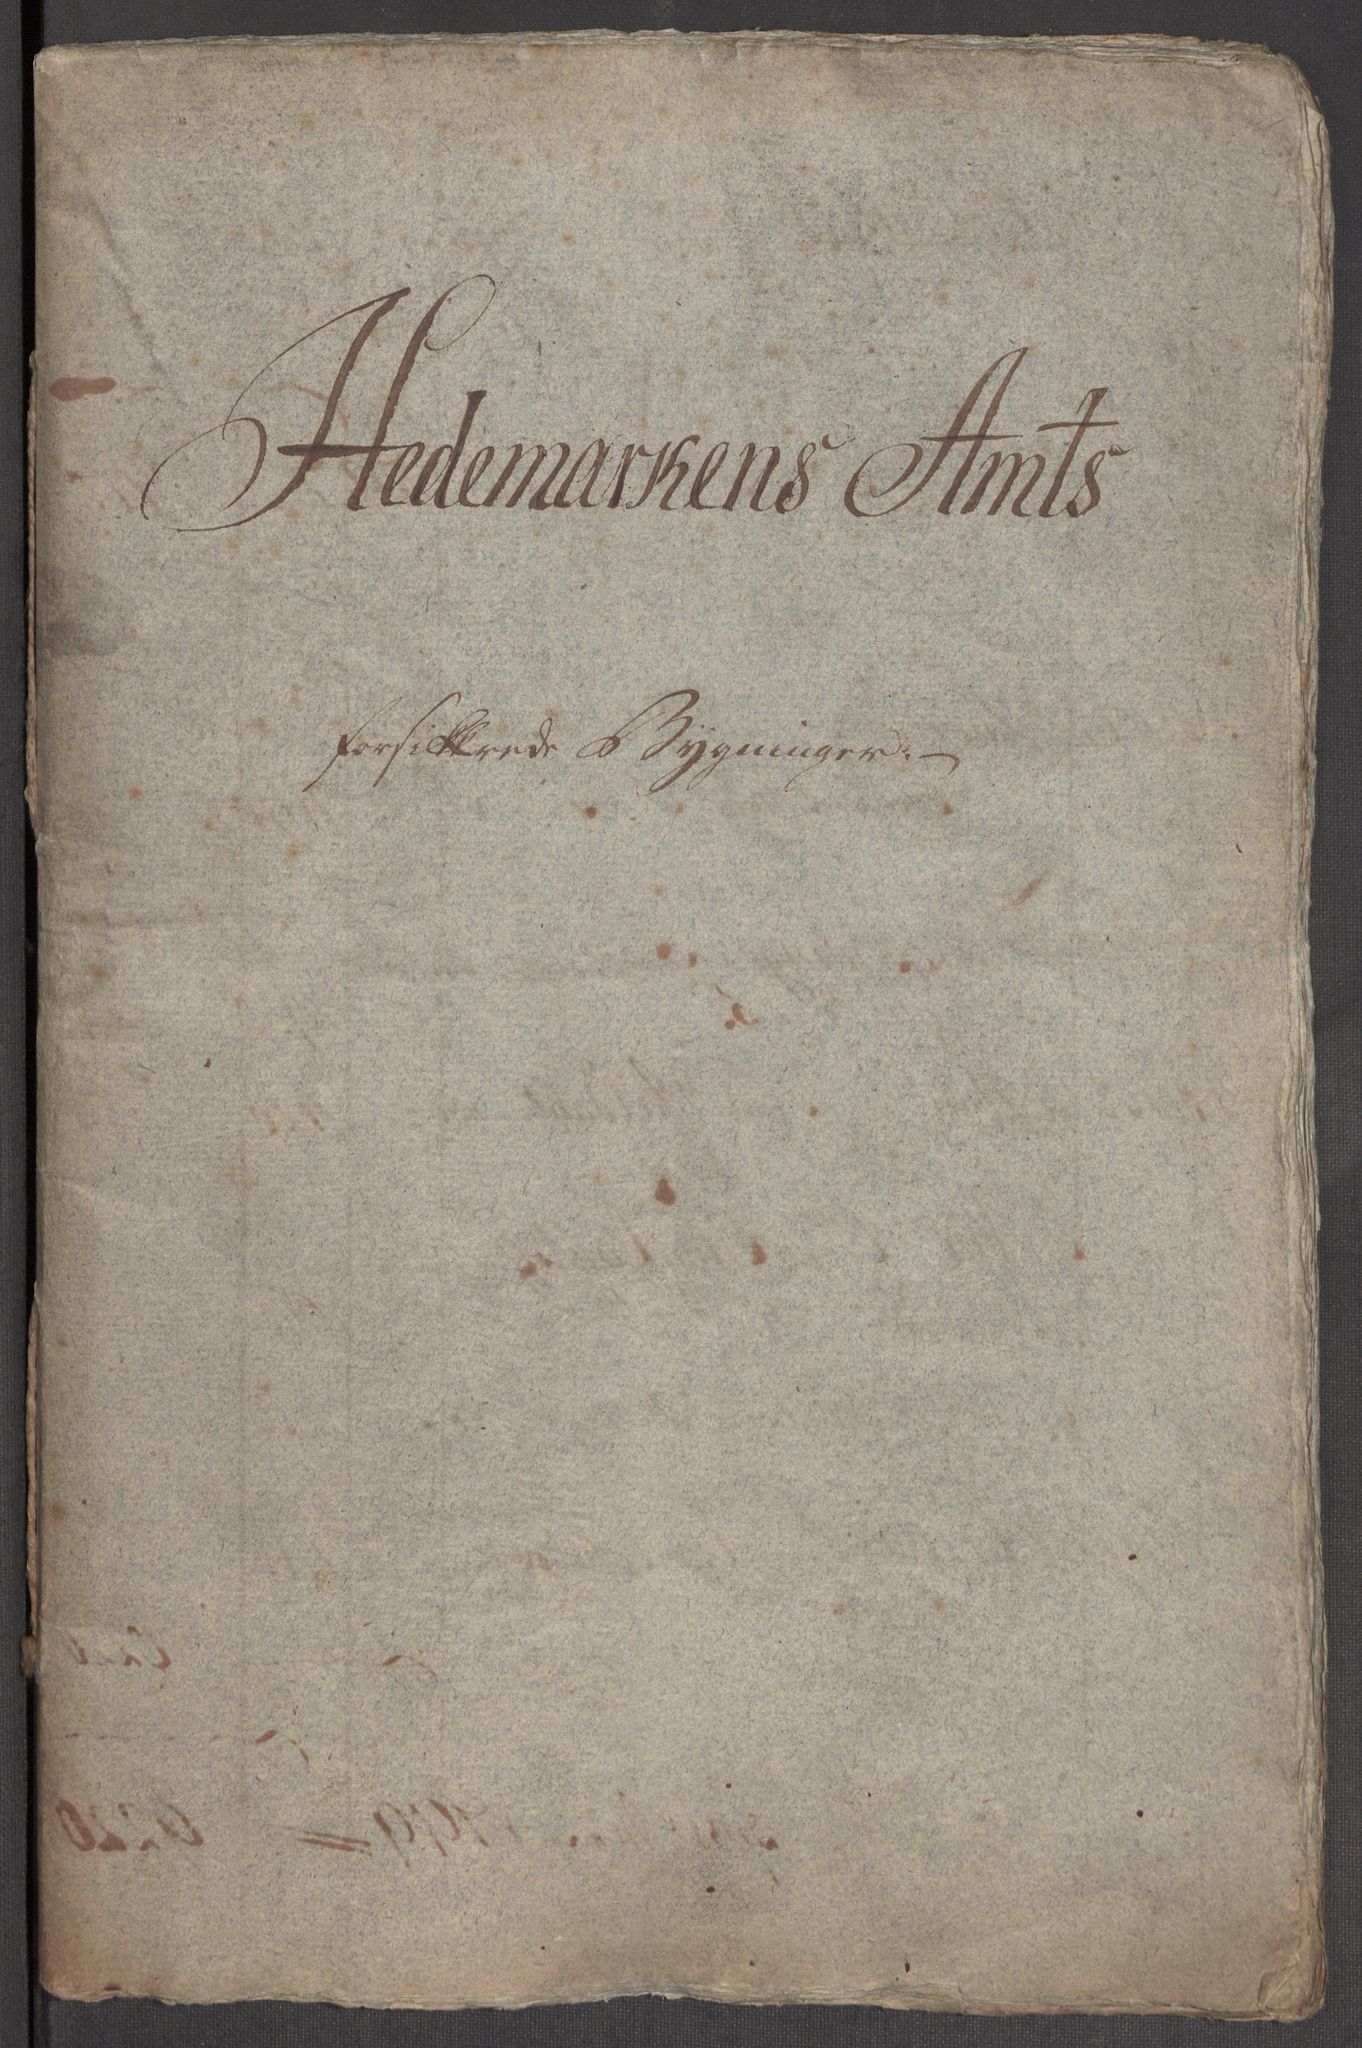 Hedemarkens Amts
forsikkrede Bygninger.